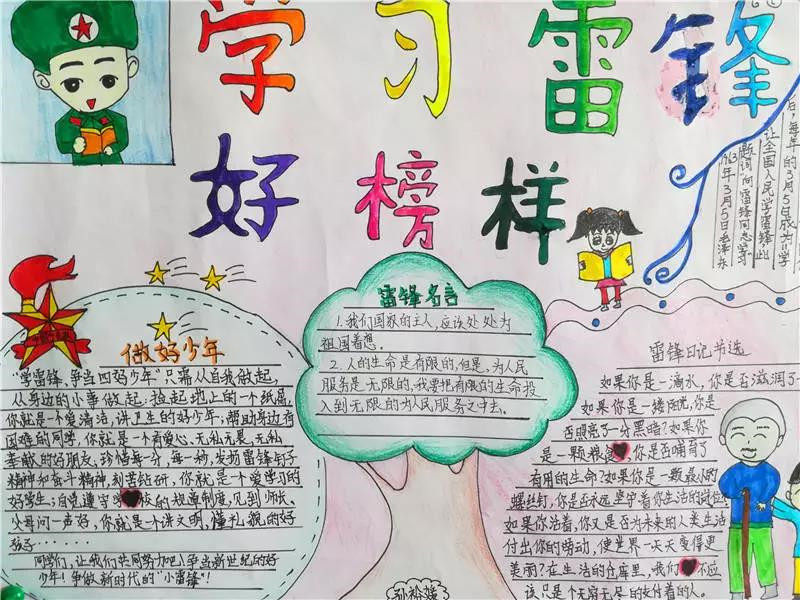 学习雷锋
好榜样
后,每年的3月5日成为"学
让全国人民学雷锋此
题词"向雷锋同志学习
1963年3月5日毛泽东
做好少年
"学雷锋,争当四好少年"只需从自我做起,
从身边的小事做起,捡起地上的一个纸屑,
你就是一个爱清洁,讲卫生的好少年;帮助身边有
困难的同学,你就是一个有爱心,无私无畏,无私
奉献的好朋友,珍惜每一分,每一秒,发扬雷锋钉子
精神和奋斗精神,刻苦钻研,你就是一个爱学习的
好学生;自觉遵守 校的规章制度,见到师长、
父母问一声好,你就是个讲文明,懂礼貌的好
孩子……
同学们,让我们共同努力吧!争当新世纪的好
少年!争做新时代的"小雷锋"!
雷锋名言
1.我们国家的主人,应该处处为
祖国着想。
2.人的生命是有限的,但是,为人民
服务是无限的,我要把有限的生命投
入到无限的为人民服务之中去。
雷锋日记节选
如果你是一滴水,你是否滋润了
如果你是一缕阳光,你是
否照亮了一分黑暗?如果你
是一颗粮食 你是否哺育了
有用的生命?如果你是一颗最小的
螺丝钉,你是否永远坚守着你生活的岗位
如果你活着,你又是否为未来的人类生活
付出你的劳动,使世界一天天变得更
美丽?在生活的仓库里,我们 不应
该只是个无穷无尽的支付着的人。